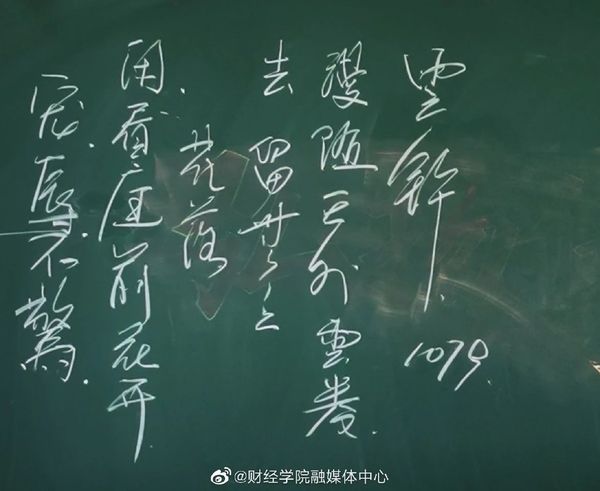 宠辱不驚.
闲看庭前花开
花落.
去 留無意
漫随天外雲卷.
雲舒.
1079.
@财经学院融媒体中心